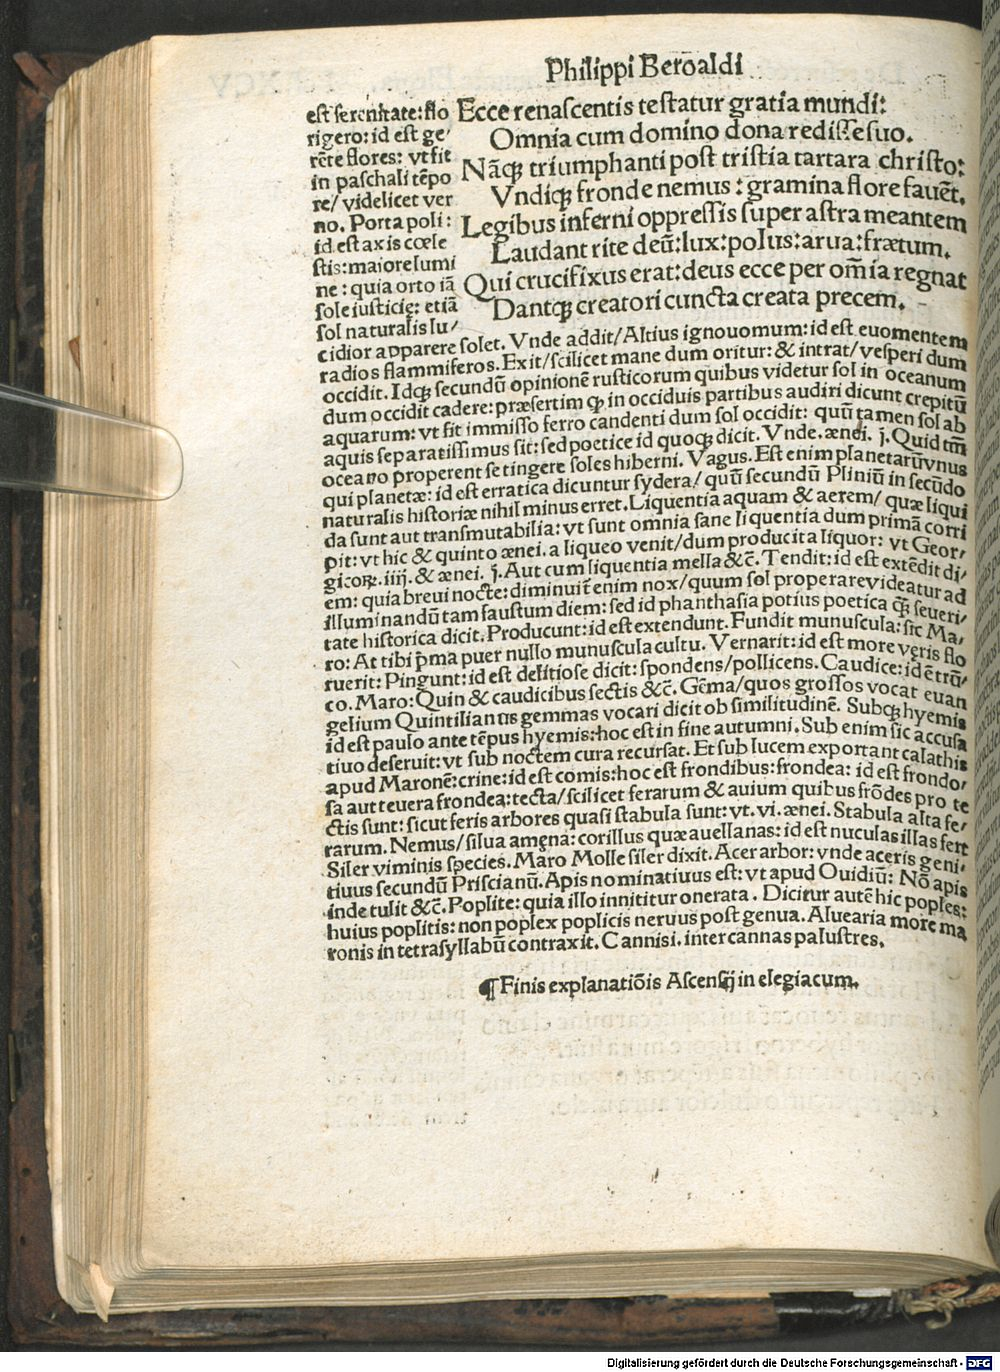 Philippi Beroaldi
Ecce renascentis testatur gratia mundi:
Omnia cum domino dona redisse suo.
Nāqꝫ triumphanti post tristia tartara christo:
Vndiqꝫ fronde nemus: gramina flore fauēt.
Legibus inferni oppressis super astra meantem
Laudant rite deū: lux: polus: arua: frætum.
Qui crucifixus erat: deus ecce per om̄ia regnat
Dantqꝫ creatori cuncta creata precem.
est serenitate: flo
rigero: id est ge/
rēte flores: vt fit
in paschali tēpo
re/ videlicet ver
no. Porta poli:
id est axis cœle
stis: maiore lumi
ne: quia orto iā
sole iusticię: etiā
sol naturalis lu/
cidior apparere solet. Vnde addit/Altius ignouomum: id est euomentem
radios flammiferos. Exit/scilicet mane dum oritur: & intrat/vesperi dum
occidit. Idqꝫ secundū opinionē rusticorum quibus videtur sol in oceanum
dum occidit cadere: præsertim ꝙ in occiduis partibus audiri dicunt crepitū
aquarum: vt fit immisso ferro candenti dum sol occidit: quū tamen sol ab
aquis separatissimus sit: sed poetice id quoqꝫ dicit. Vnde. ænei. j. Quid tm̄
oceano properent se tingere soles hiberni. Vagus. Est enim planetarū vnus
qui planetæ: id est erratica dicuntur sydera/ quū secundū Pliniū in secūdo
naturalis historiæ nihil minus erret. Liquentia aquam & aerem/ quæ liqui
da sunt aut transmutabilia: vt sunt omnia sane liquentia dum primā corri
pit: vt hic & quinto ænei. a liqueo venit/dum producit a liquor: vt Geor/
gicoꝝ. iiij. & ænei. j. Aut cum liquentia mella &c̄. Tendit: id est extēdit di/
em: quia breui nocte: diminuit̄ enim nox/quum sol properare videatur ad
illuminandū tam faustum diem: sed id phanthasia potius poetica ꝙ̄ seueri/
tate historica dicit. Producunt: id est extendunt. Fundit munuscula: sic Ma/
ro: At tibi p̄ma puer nullo munuscula cultu. Vernarit: id est more veris flo
ruerit: Pingunt: id est delitiose dicit: spondens/pollicens. Caudice: id ē trū/
co. Maro: Quin & caudicibus sectis &c̄. Gēma/quos grossos vocat euan
gelium Quintilianus gemmas vocari dicit ob similitudinē. Subqꝫ hyemis
id est paulo ante tēpus hyemis: hoc est in fine autumni. Sub enim sic accusa
tiuo deseruit: vt sub noctem cura recursat. Et sub lucem exportant calathis
apud Maronē: crine: id est comis: hoc est frondibus: frondea: id est frondo/
sa aut teuera frondea: tecta/scilicet ferarum & auium quibus frōdes pro te
ctis sunt: sicut feris arbores quasi stabula sunt: vt. vi. ænei. Stabula alta fe/
rarum. Nemus/silua amęna: corillus quæ auellanas: id est nuculas illas fert
Siler viminis species. Maro Molle siler dixit. Acer arbor: vnde aceris geni/
tiuus secundū Priscianū. Apis nominatiuus est: vt apud Ouidiū: Nō apis
inde tulit &c̄. Poplite: quia illo innititur onerata. Dicitur autē hic poples:
huius poplitis: non poplex poplicis neruus post genua. Aluearia more ma
ronis in tetrasyllabū contraxit. Cannisi. inter cannas palustres.
¶ Finis explanatiōis Ascensij in elegiacum.
Digitalisierung gefördert durch die Deutsche Forschungsgemeinschaft - DFG